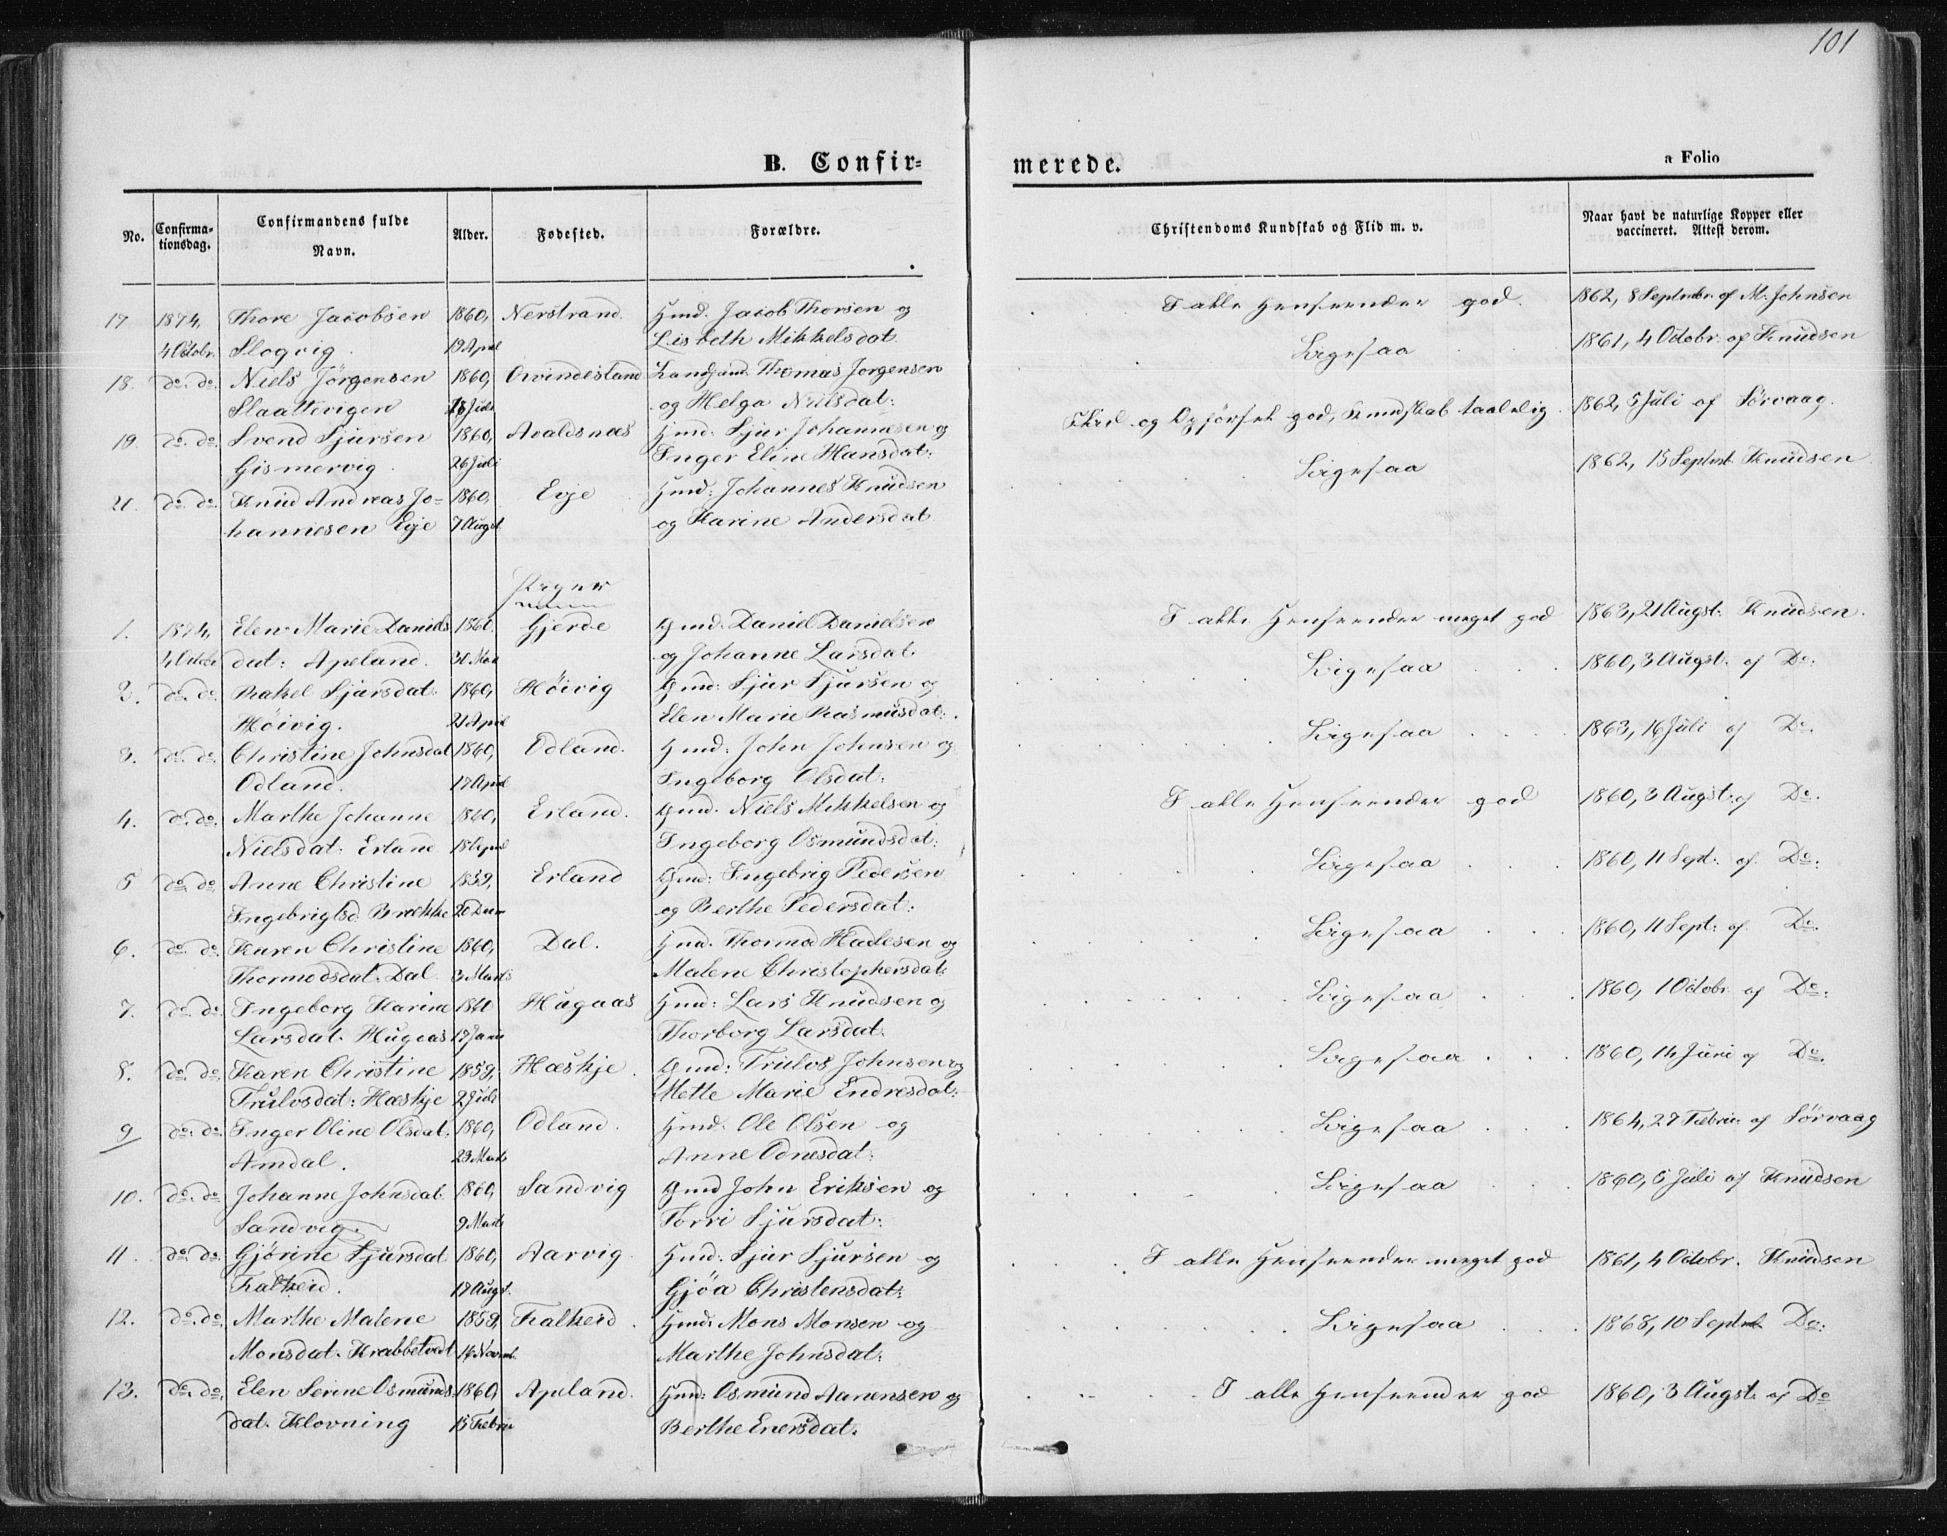 101
B. Confir-
merede.
a Folio
No.
Confirma-
tionsdag.
Confirmandens fulde
Navn.
Alder.
Fødested.
Forældre.
Christendoms Kundskab og Flid m. v.
Naar havt de naturlige Kopper eller
vaccineret. Attest derom.
17 1874, Thore Jacobsen 1860, Nerstrand. Hmd. Jacob Thorsen og I alle Henseender god. 1862, 8 Septmbr. af M. Johnsen
4 Octobr. Slogvig. 19 April Lisbeth Mikkelsdat. Ligesaa 1861, 4 Octobr. af Knudsen
18. do. do. Niels Jörgensen 1860, Övindesland Thomas Jorgensen
Slaattevigen 18 Juli og Helga Nielsdat: Flid og Opförsel god, Kundskab taalelig. 1862, 5 Juli af Sörvaag.
19. do. do. Svend Sjursen 1860, Avaldsnæs Hmd. Sjur Johannesen og
Gismervig. 26 Juli Inger Eline Hansdat: Ligesaa 1862, 15 Septmb. Knudsen
21. do. do. Knud Andreas Jo- 1860, Eije Hmd: Johannes Knudsen
hannesen Eije 7 Augst og Karine Andersdat
Piger
1. 1874, Elen Marie Daniels 1860. Gjerde Gmd. Daniel Danielsen I alle Henseender meget god 1863, 21 Augst: Knudsen.
4 Octobr dat: Apeland. 30 Mai og Johanne Larsdat. Ligesaa 1860, 3 Augst. af Do:
2. do. do. Rakel Sjursdat. 1860, Höivig Gmd: Sjur Sjursen og
Höivig. 21 April Elen Marie Rasmusdat: Ligesaa 1863, 16 Juli af Do.
3. do. do. Christine Johnsdat 1860, Odland. Hmd: John Johnsen og
Odland. 17 April Ingeborg Olsdat: I alle Henseender god 1860, 3 Augst: af Do.
4. do. do. Marthe Johanne 1860, Erland. Gmd. Niels Mikkelsen og
Nielsdat: Erland 18 April Ingeborg Osmundsdat: Ligesaa 1860, 11 Sept: af Do:
5 do. do. Anne Christine 1859, Erland Gmd: Ingebrig Pedersen
Ingebrigtsd Brække 20 Decm og Berthe Pedersdat: Ligesaa 1860, 11 Sept: af Do.
6. do. do. Karen Christine 1860, Dal. Hmd. Thormod og
Thormodsdat. Dal. 3 Marts Malene Christophersdat: Ligesaa 1860, 1 Octobr af Do:
7. do. do. Ingeborg Karine 1860 Hugaas Hmd: Lars Knudsen og
Larsdat. Hugaas 17 Janu Thorborg Larsdat: Ligesaa 1860, 14 Juni af Do.
8. do. do. Karen Christine 1859, Hæskje. Gmd: Trulvs Johnsen og
Trulvsdat: Hæskje 2 Juli Mette Marie Endresdat: Ligesaa 1864, 27 Februr. af Sörvaag
9 do. do. Inger Oline Olsdat. 1860, Odland. Hmd. Ole Olsen og
Amdal. 23 Marts Anne Odnesdat: Ligesaa 1860, 6 Juli af Knudsen
10. do. do. Johanne Johnsdat. 1860, Sandvig Gmd John Eriksen og
Sandvig. 9 Marts Torri Sjursdat:
11. do. do. Gjörine Sjursdat 1860, Aarvig. Hmd: Sjur Sjursen og I alle Henseender meget god 1861, 4 Octobr. Knudsen
Falkeid. 17 Augst. Gjöa Christensdat:
12. do. do. Marthe Malene 1859, Falkeid. Hmd: Mons Monsen og Ligesaa 1868, 10 Septmb. Do:
Monsdat. Krabbetvedt 14 Novmb. Marthe Johnsdat:
13. do. do. Elen Serine Osmunds. 1860, Apeland. Hmd: Osmund Aanensen og I alle Henseender god 1860, 3 Augst: af Do
dat. Klovning 15 Febru Berthe Enersdat.